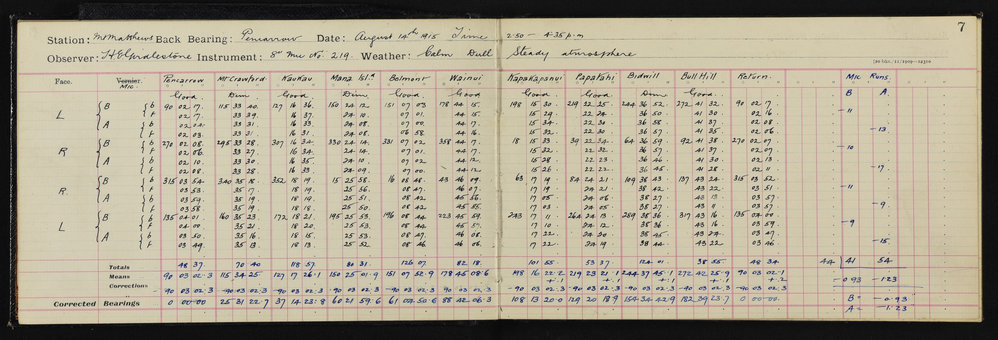 7
Station: Mt Matthews Back Bearing: Pencarrow Date: August 14th 1915 Time 2·50 – 4·35 p.m
Observer: Instrument: 8" Mic No. 219. Weather: Calm Dull Steady atmosphere
Face. Vernier. Mic. Pencarrow Mt Crawford Kaukau Mana Isld. Belmont Wainui Kapakapanui Papatahi Bidwill Bull Hill Return. Mic Runs.
B A
Good. Dim Good. Dim. Good. Good. Good. Good. Dim Good.
L B b 90 02 17. 115 33 40. 127 16 36. 150 24 12. 151 07 03 178 44 15. 198 15 30. 219 22 25 244 36 52. 272 41 32. 90 02 17.
f 02 17. 33 39. 16 37. 24 10. 07 01. 44 15. 15 29. 22 24. 36 50. 41 30. 02 16. – 11
A b 33 31. 16 33. 24 08. 07 00 44 17. 15 34. 22 30. 36 58. 41 37. 02 08.
f 02 03. 33 31. 16 31. 24 08. 06 58. 44 16. 15 32. 22 30 36 57. 41 35. 02 06. – 13
R B b 270 02 08. 295 33 28. 307 16 34. 330 24 14. 331 07 02 358 44 17. 18 15 33. 39 22 34. 64 36 59. 92 41 38. 270 02 07
f 02 06. 33 27. 16 34. 24 14. 07 01 44 17. 15 32. 22 32. 36 57 41 37. 02 07 – 10
A b 02 10. 33 30. 16 35. 24 10. 07 02 44 12. 15 28. 22 23. 36 46. 41 30. 02 13
f 02 08. 33 28. 16 33. 24 09. 07 00. 44 12 15 26 22 22. 36 45. 41 28. 02 11. – 17
R B b 315 03 54. 340 35 18. 352 18 19. 15 25 58. 16 08 48. 43 46 09. 63 17 19. 84 24 21. 109 38 43. 137 43 24. 315 03 52.
f 03 53. 35 17. 18 19. 25 56. 08 47. 46 07. 17 19 24 21. 38 42. 43 22 03 51. – 11
A b 03 59. 35 19. 18 19. 25 51. 08 42 45 56. 17 05 24 06. 38 27 43 13 03 57.
f 03 58 35 19 18 18. 25 50. 08 42 45 55. 17 03 24 05 38 27 43 13 03 57. – 9
L B b 135 04 01. 160 35 23. 172 18 21. 195 25 53. 196 08 44 223 45 59. 243 17 11 264 24 13. 289 38 36 317 43 16 135 04 00.
f 04 00 35 21 18 20. 25 53. 08 44 45 57. 17 10 24 12. 38 36 43 16 03 59. – 9
A b 03 50. 35 16 18 15. 25 53 08 47. 46 08. 17 22 24 20 38 45. 43 24. 03 47.
f 03 49. 35 13 18 13. 25 52 08 46 46 06. 17 22. 24 19 38 44 43 22 03 46 – 15
Totals 48 37. 70 40 118 57. 80 31. 126 07 82 18. 101 55 53 37. 124 01 38 55. 48 34 44 41 54
Means 90 03 02·3 115 34 25 127 17 26·1 150 25 01·9 151 07 52·9 178 45 08·6 198 16 22·2 219 23 21·1 244 37 45·1 272 42 25·9 90 03 02·1
Corrections + ·1 + ·1 + ·1 + ·1 + ·2 – 0·93 – 1·23
– 90 03 02·3 – 90 03 02·3 – 90 03 02·3 – 90 03 02·3 – 90 03 02·3 – 90 03 02·3 – 90 03 02·3 – 90 03 02·3 – 90 03 02·3 – 90 03 02·3 – 90 03 02·3
Corrected Bearings 0 00·00 25 31 22·7 37 14 23·8 60 21 59·6 61 04 50·6 88 42 06·3 108 13 20·0 129 20 18·9 154 34 42·9 182 39 23·7 0 00·00. B= – 0·93
A= – 1·23